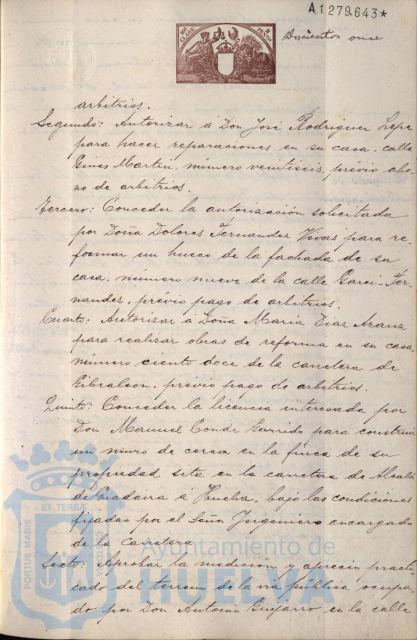 A1279.643*
Doscientos once
arbitrios.
Segundo: Autorizar á Don José Rodriguez Lepe
para hacer reparaciones en su casa, calle
Gines Martin, número veintiseis, previo abo-
no de arbitrios.
Tercero: Conceder la autorización solicitada
por Doña Dolores Fernandez Vivas para re-
formar un hueco de la fachada de su
casa, número nueve de la calle Garci-Fer-
nandez, previo pago de arbitrios.
Cuarto: Autorizar á Doña Maria Diaz
para realizar obras de reforma en su casa
número ciento doce de la carretera de
Gibraleon, previo pago de arbitrios.
Quinto: Conceder la licencia interesada por
Don Manuel Conde Garrido para construir
un muro de cerca en la finca de su
propiedad sita en la carretera de Alcalá
de Guadaira á Huelva, bajo las condiciones
fijadas por el Señor Ingeniero encargado
de la carretera
Sexto: Aprobar la medicion y aprecio practi-
cado del terreno de la via pública ocupa-
do por Don Antonio Guijarro en la calle
PORTUS MARIS
ET TERRÆ
Ayuntamiento de
HUELVA